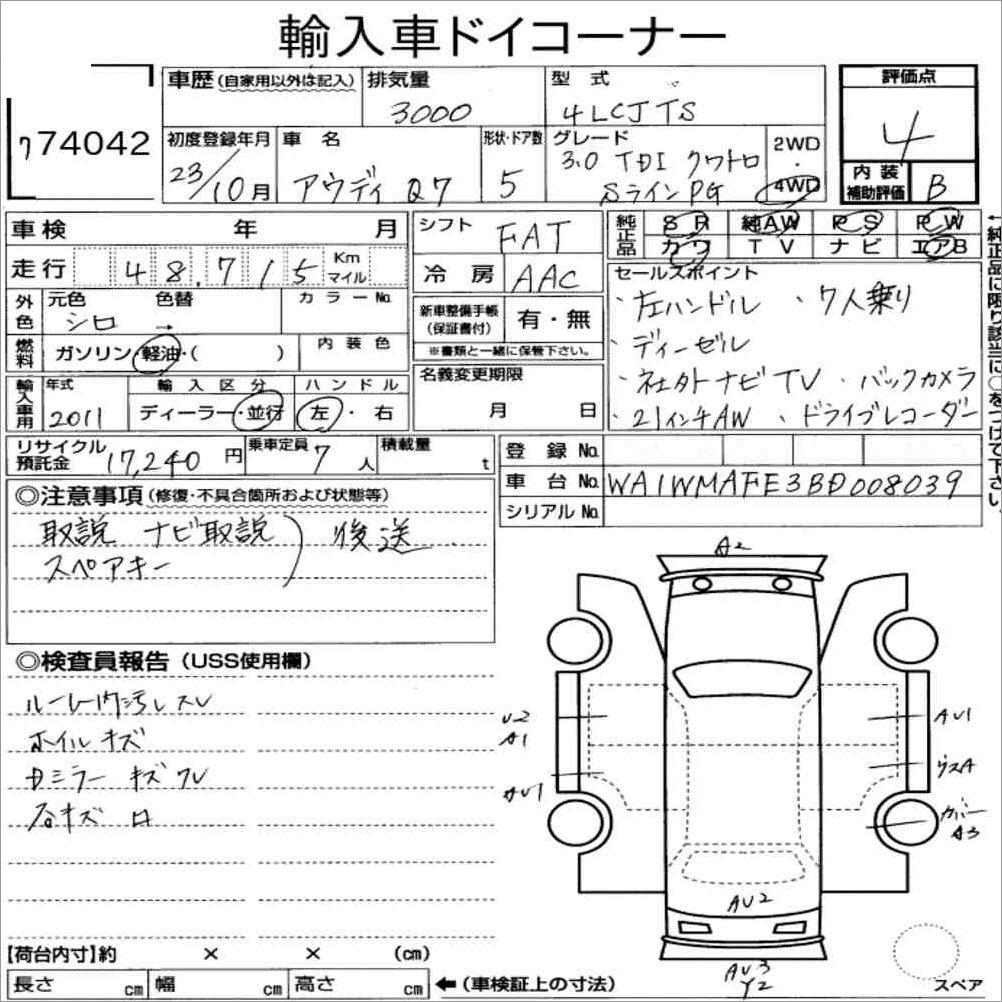 輸入車ドイコーナー
ワ74042
車歴(自家用以外は記入)
排気量
3000
型式
4LCJTS
評価点
4
初度登録年月
23/10月
車名
アウディ Q7
形状・ドア数
5
グレード
3.0 TDI クワトロ
SラインPG
2WD
・
4WD
内装
補助評価
B
車検 年 月
シフト
FAT
純正品
SR 純AW PS PW
カワ TV ナビ エアB
走行 48,715 Km
マイル
冷房
AAC
外色
元色 色替 カラーNo.
シロ →
新車整備手帳
(保証書付)
有・無
※書類と一緒に保管下さい。
燃料
ガソリン・軽油・( )
内装色
輸入車用
年式
2011
輸入区分
ディーラー・並行
ハンドル
左・右
名義変更期限
月 日
セールスポイント
・左ハンドル ・7人乗り
・ディーゼル
・社外ナビTV ・バックカメラ
・21インチAW ・ドライブレコーダー
←純正品に限り該当に○をつけて下さい。
リサイクル
預託金
17,240円
乗車定員
7人
積載量
t
登録No.
車台No.
WA1WMAFE3BD008039
シリアルNo.
◎注意事項(修復・不具合箇所および状態等)
取説 ナビ取説
スペアキー
) 後送
◎検査員報告(USS使用欄)
ルーム内汚レスレ
ホイルキズ
ドミラーキズワレ
A2
U2
A1
AU1
AU1
ウスA
カバー
A3
AU2
AU3
Y2
スペア
【荷台内寸】約 × × (cm)
長さ cm 幅 cm 高さ cm ←(車検証上の寸法)